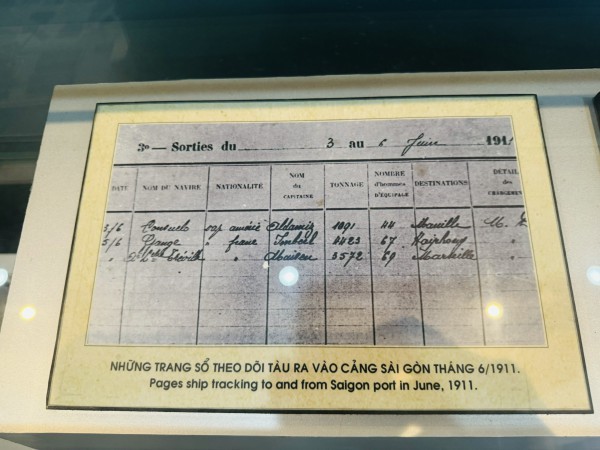 3º — Sorties du 3 au 6 Juin 191
DATE NOM DU NAVIRE NATIONALITÉ NOM du CAPITAINE TONNAGE NOMBRE d'hommes D'ÉQUIPAGE DESTINATIONS DÉTAIL des CHARGEMEN
3/6 Consuelo Aldamiz 1091 44 Manille M.
5/6 Gange franc 4423 67 Haïphong "
" Tréville " Maisen 3572 69 Marseille "
NHỮNG TRANG SỔ THEO DÕI TÀU RA VÀO CẢNG SÀI GÒN THÁNG 6/1911.
Pages ship tracking to and from Saigon port in June, 1911.